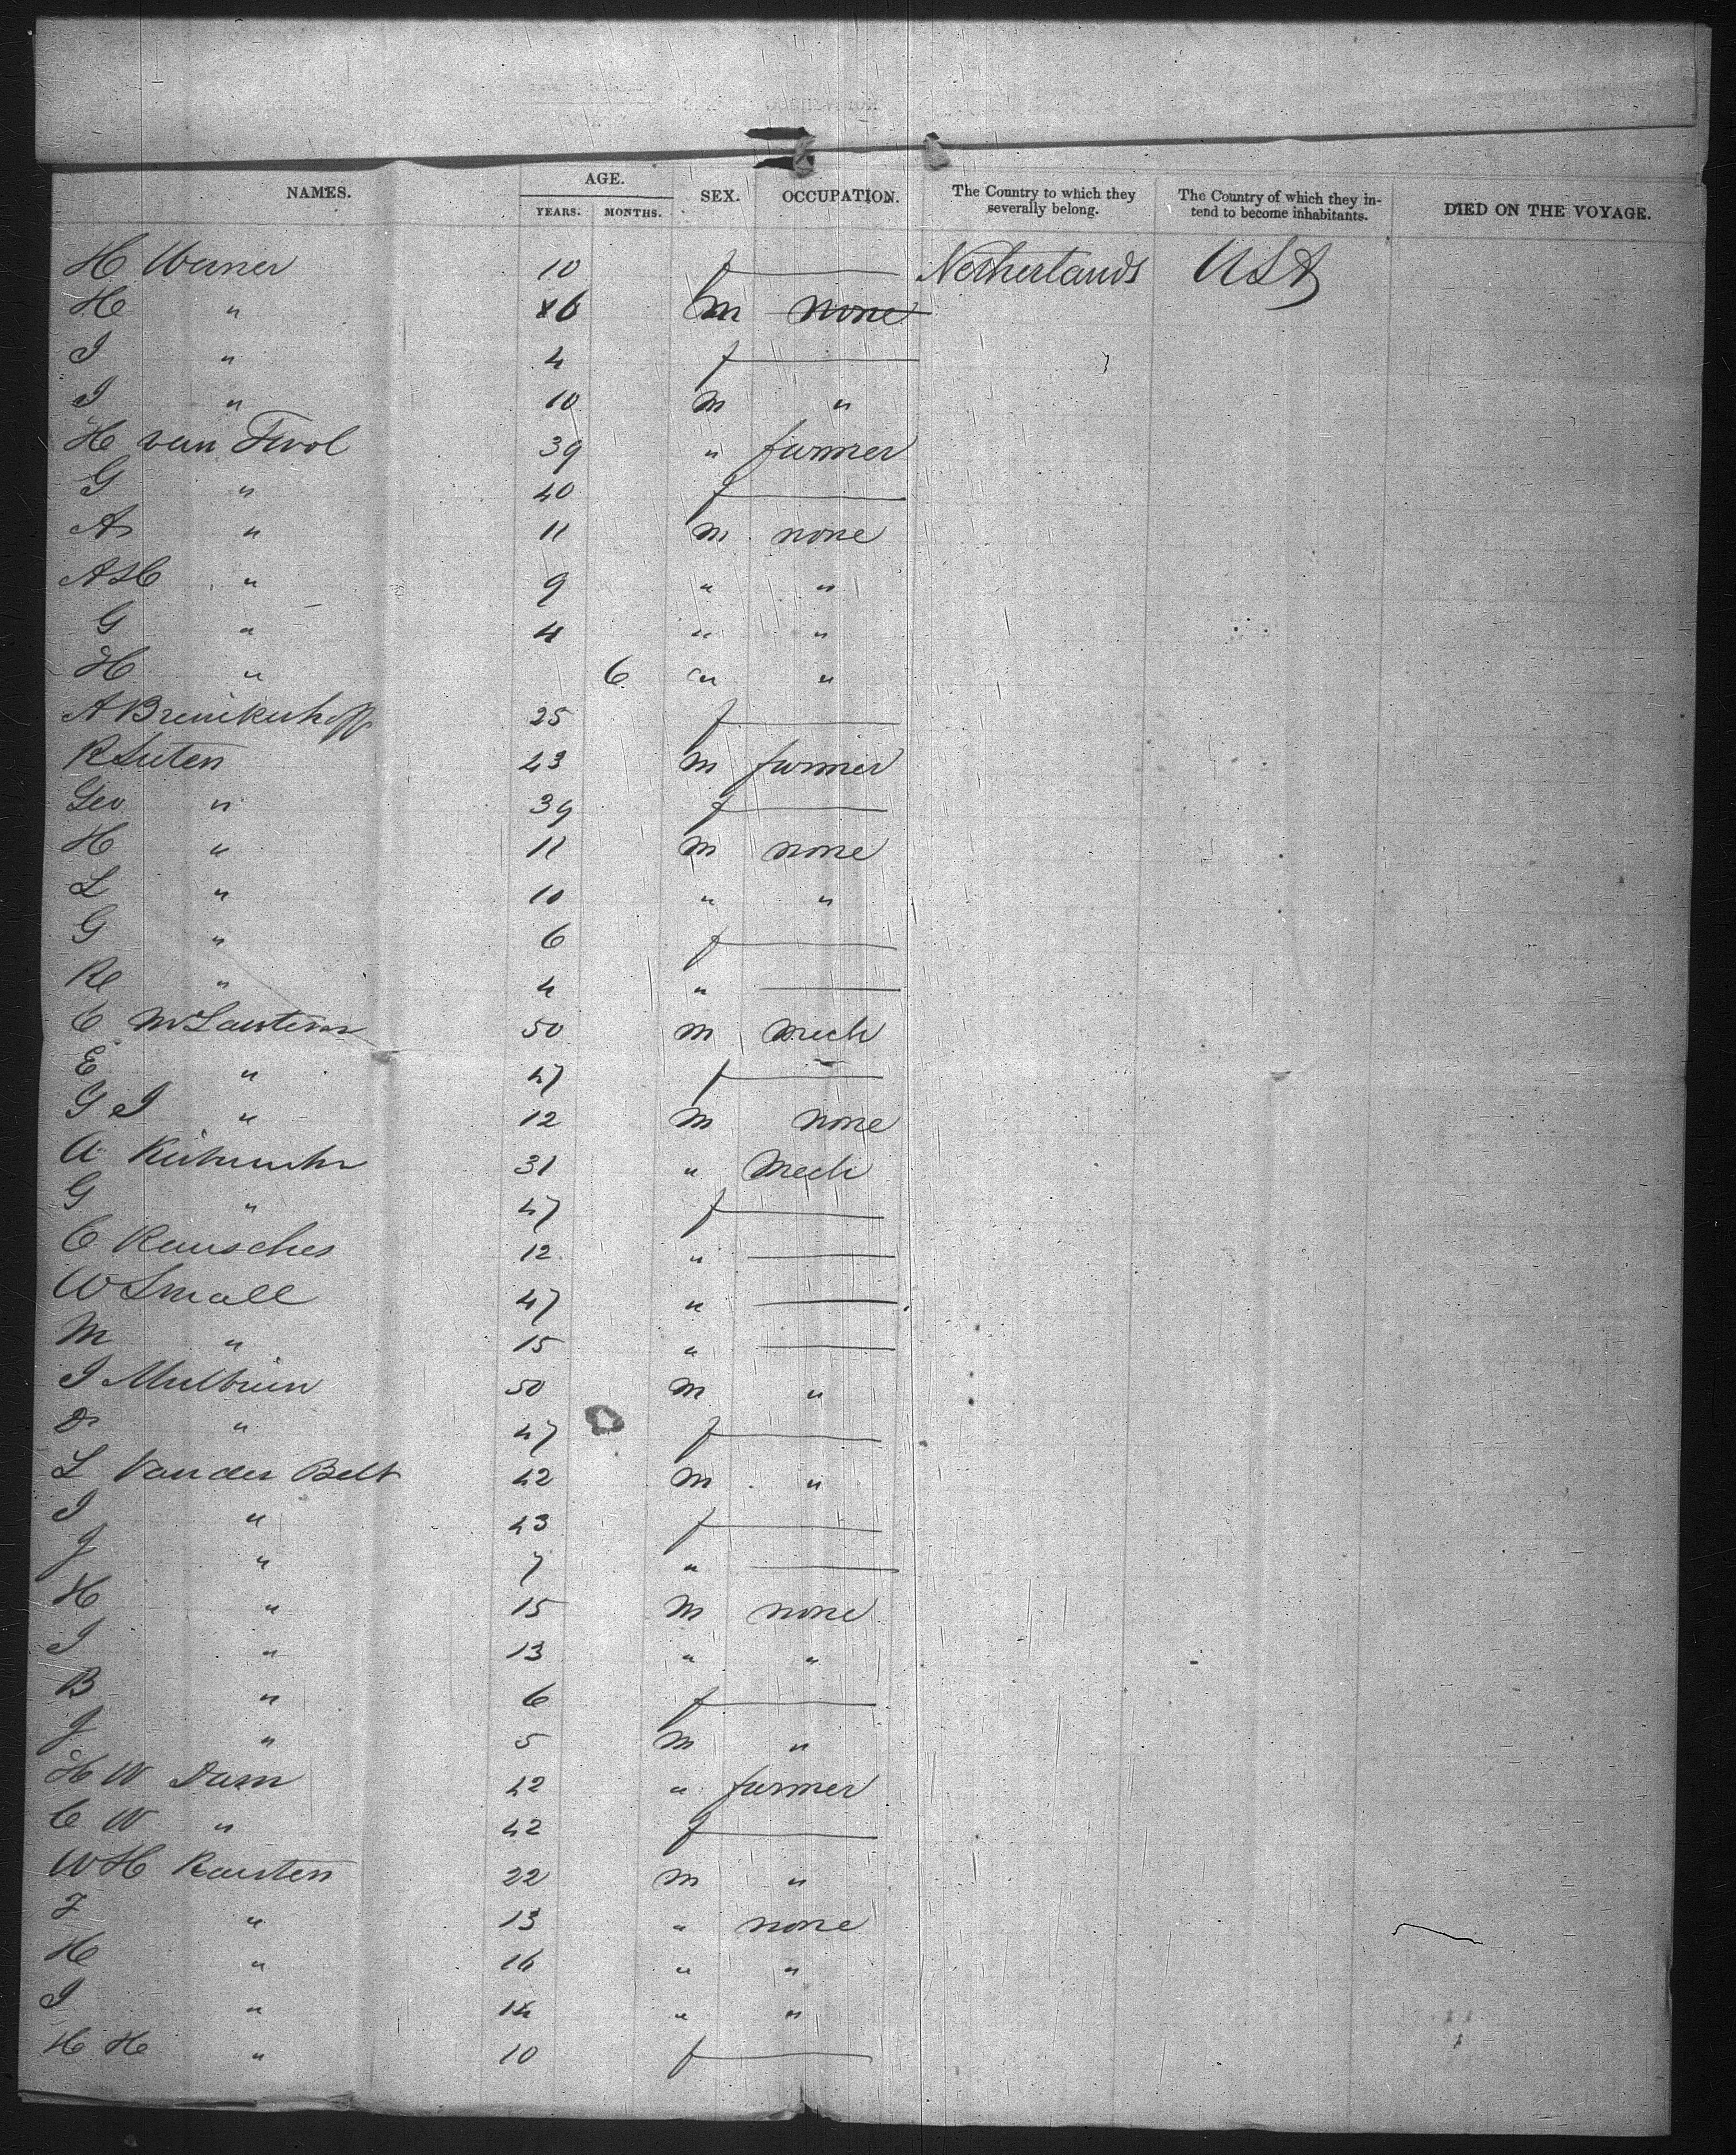 NAMES. AGE. YEARS. MONTHS. SEX. OCCUPATION. The Country to which they severally belong. The Country of which they intend to become inhabitants. DIED ON THE VOYAGE.
H Werner 10 f — Netherlands USA
H " 6 m none
I " 4 f —
I " 10 m "
H van Tivol 39 " farmer
G " 40 f —
A " 11 m none
A H " 9 " "
G " 4 " "
H " 6 " "
A Brenikerhoff 25 f —
R Luten 43 m farmer
Geo " 39 f —
H " 11 m none
L " 10 " "
G " 6 f —
R " 4 " —
C 50 m Mech
E " 47 f —
G I " 12 m none
A 31 " Mech
G " 47 f —
C Rausches 12 " —
W Small 47 " —
M " 15 " —
I 50 m "
D " 47 f —
L Vander Belt 42 m "
I " 43 f —
J " 7 " —
H " 15 m none
I " 13 " "
B " 6 f —
J " 5 m "
H W Dam 42 " farmer
C W " 42 f —
W H Karsten 22 m "
" 13 " none
H " 16 " "
I " 14 " "
H H " 10 f —